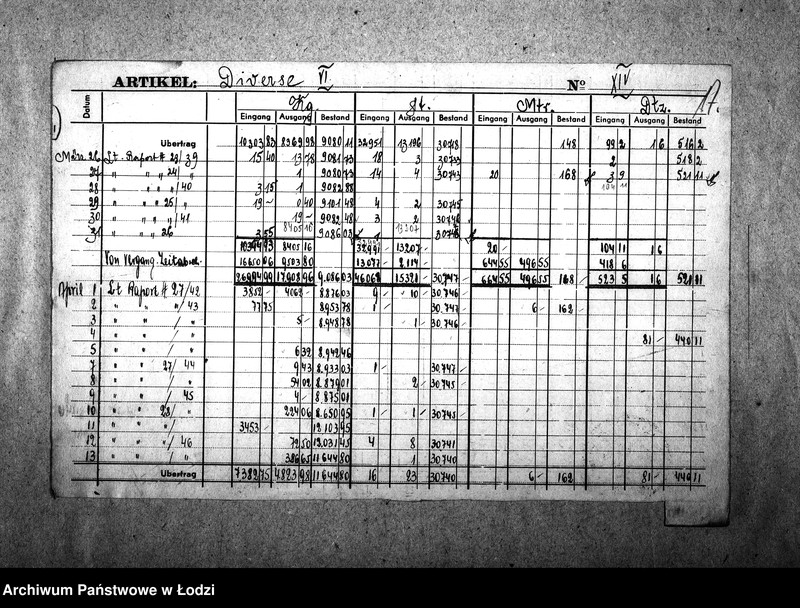 ARTIKEL: Diverse VI Nº XIV 17.
Datum Kg. St. Mtr. Dtz.
Eingang Ausgang Bestand Eingang Ausgang Bestand Eingang Ausgang Bestand Eingang Ausgang Bestand
Übertrag 10303 83 8369 98 9080 11 32951 13196 30718 148 99 2 1 6 516 2
März 26 Lt. Raport # 23/39 15 40 13 78 9081 73 18 3 30733 2 518 2
27 " " " 24/ " 1 9080 73 14 4 30743 20 168 3 9 521 11
28 " " " "/40 3 15 1 9082 88 104 11
29 " " " 25/ " 19 - 0 40 9101 48 4 2 30745
30 " " " "/41 19 - 9082 48 3 2 30746
31 " " " 26 3 55 8405 16 9086 03 13207 30746
10344 93 8405 16 32991 13207 20 - 104 11 1 6
Von Vergang. 16650 06 9503 80 13077 2114 - 644 55 496 55 418 6
26994 99 17908 96 9.086 03 46068 15321 - 30.747 - 664 55 496 55 168 - 523 5 1 6 521 11
April 1 Lt Raport # 27/42 3852 - 4062 - 8.876 03 9 - 10 - 30.746 -
2 " " " "/43 77 75 8.953 78 1 - 30.747 - 6 - 162 -
3 " " " / " 5 - 8.948 78 1 - 30.746 -
4 " " " / " 81 - 440 11
5 " " " / " 6 32 8.942 46
7 " " " 27/44 9 43 8.933 03 1 - 30.747 -
8 " " " / " 54 02 8.879 01 2 - 30.745 -
9 " " " /45 4 - 8.875 01
10 " " " 28/ " 224 06 8.650 95 1 - 1 - 30.745 -
11 " " " / " 3453 - 12.103 95
12 " " " /46 72 50 12.031 45 4 8 30741
13 " " " / " 386 65 11644 80 1 30740
Übertrag 7382 75 4823 98 11644 80 16 23 30740 6 - 162 81 - 440 11
Archiwum Państwowe w Łodzi